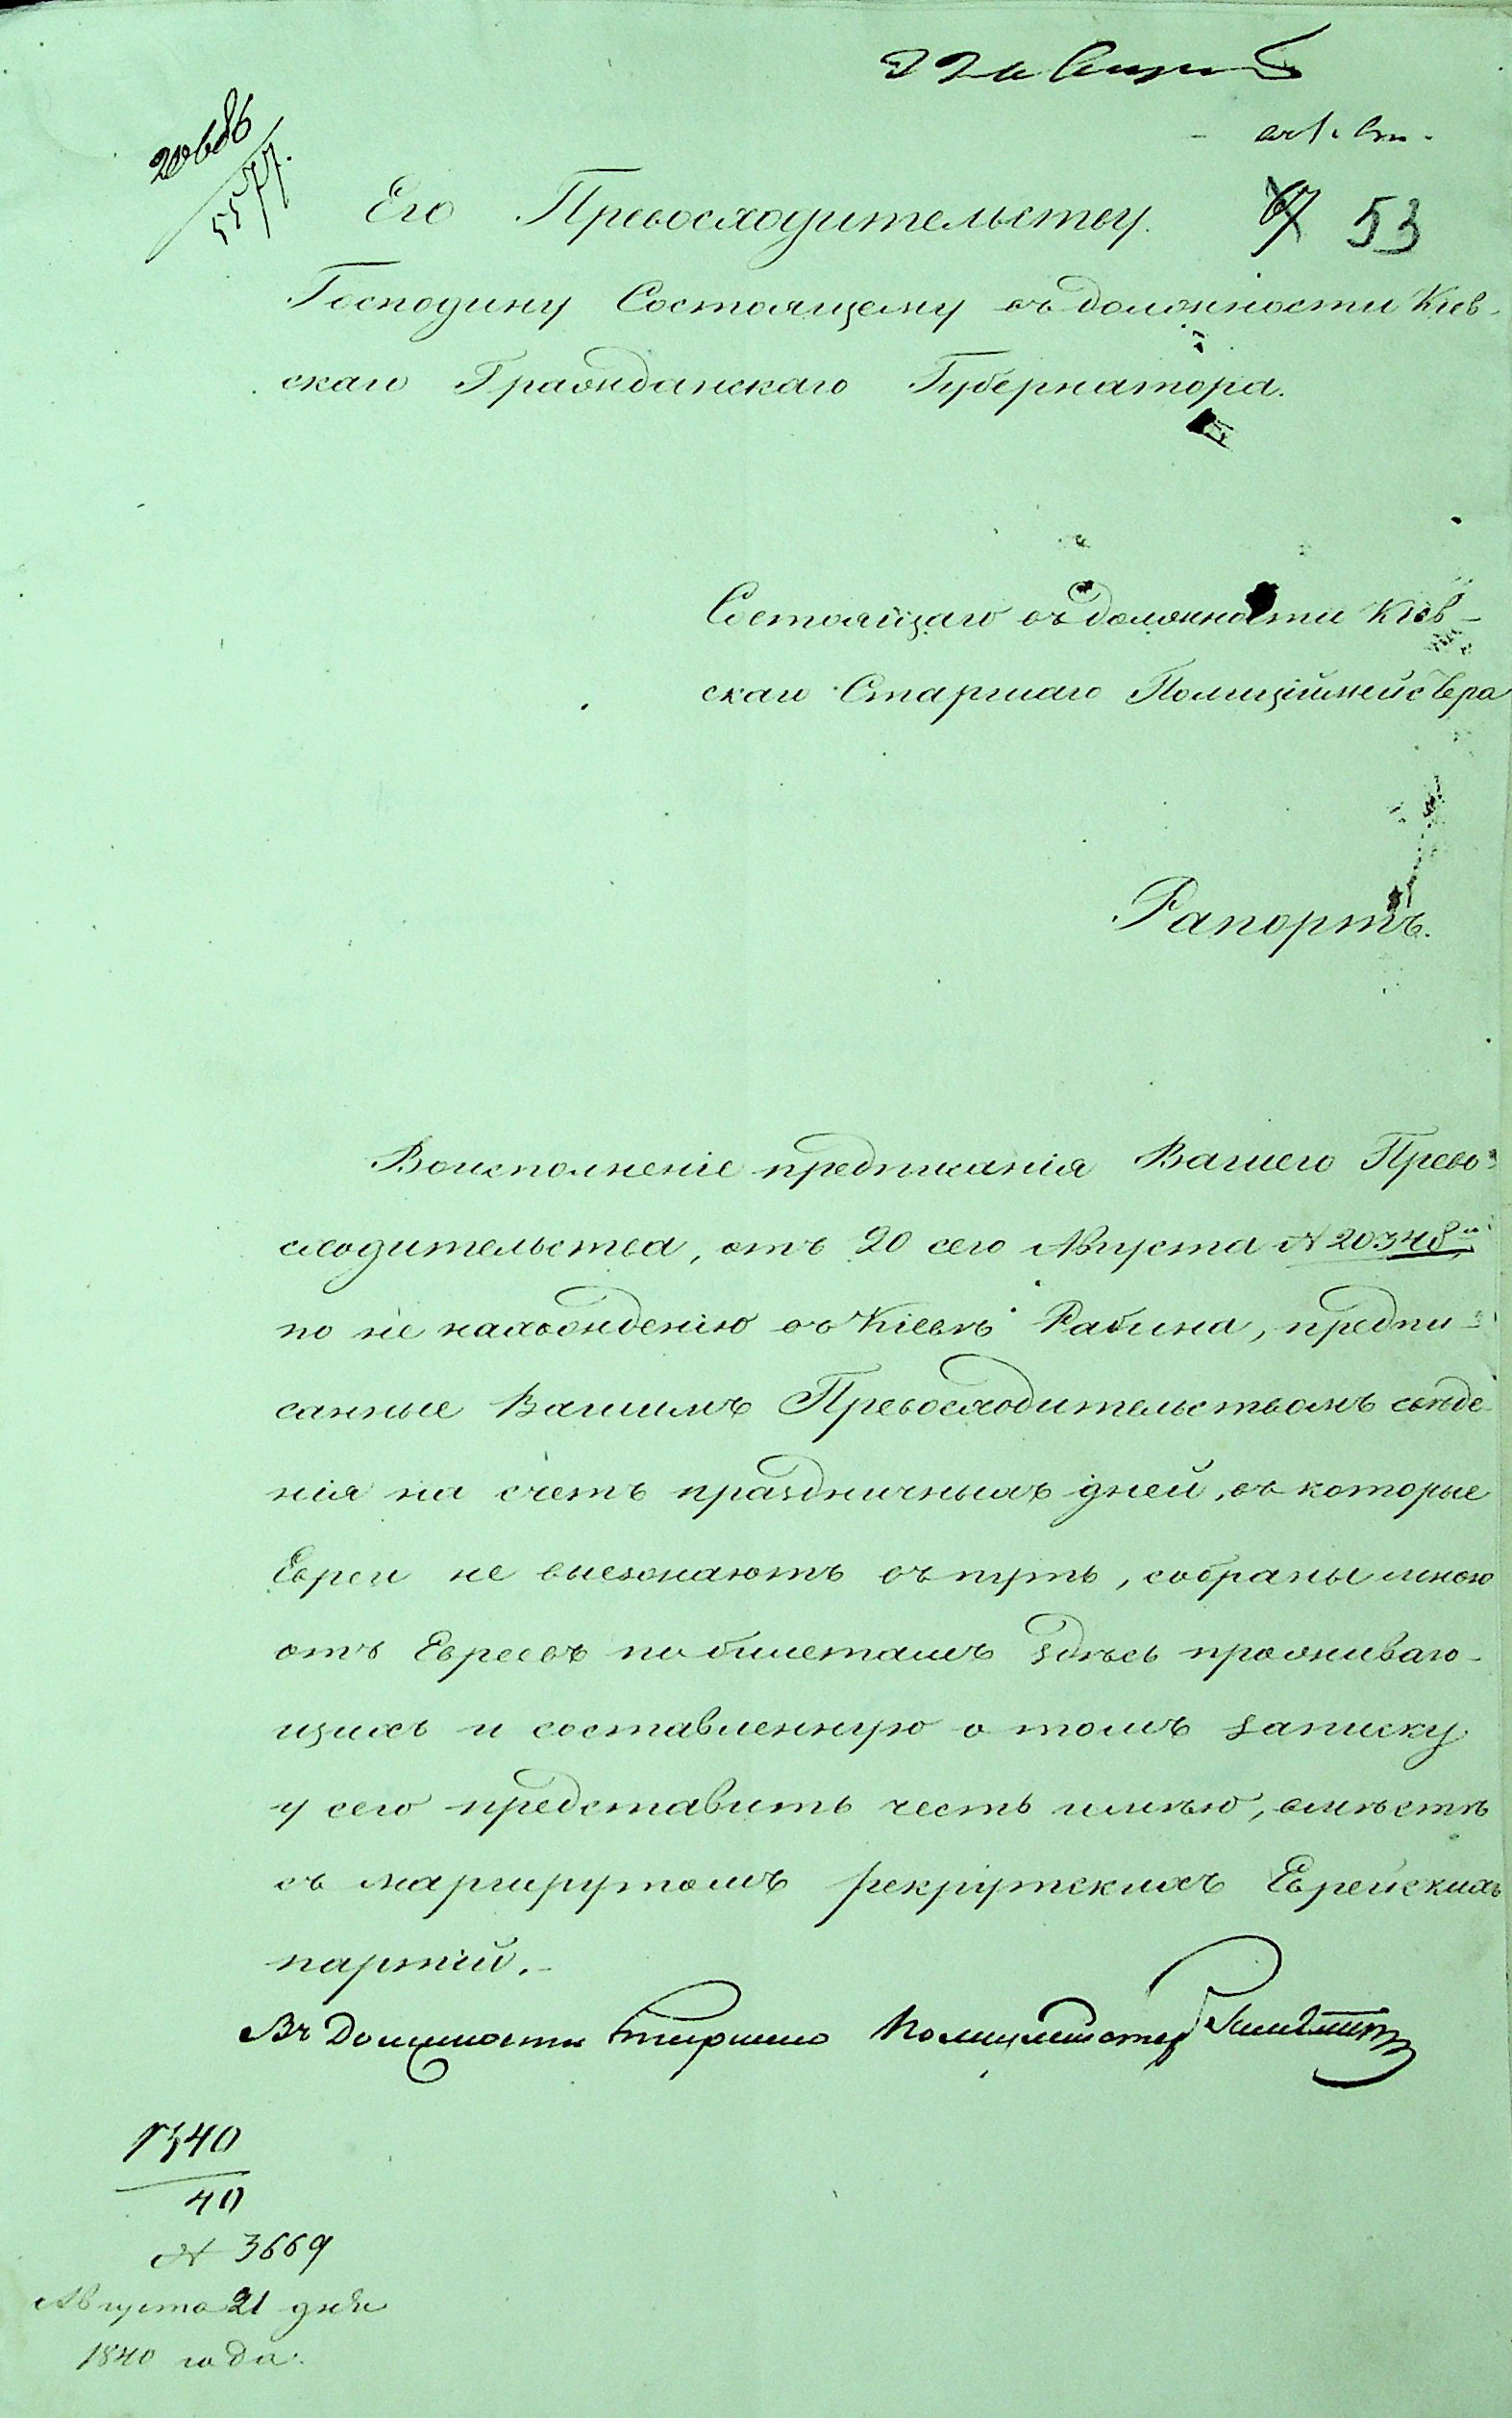 22 Августа
20686
5577.
Его Превосходительству. 53
Господину Состоящему въ должности Кіев-
скаго Гражданскаго Губернатора.
Состоящаго въ должности Кіев-
скаго Старшаго Полиціймейстера
Рапортъ.
Воисполненіе предписанія Вашего Прево-
сходительства, отъ 20 сего Августа № 20348
по не нахожденію въ Кіевѣ Рабина, предпи-
санные Вашимъ Превосходительствомъ свѣде-
нія на счетъ праздничныхъ дней, въ которые
Евреи не выезжаютъ въ путь, собраны мною
отъ Евреевъ по билетамъ здѣсь проживаю-
щихъ и составленную о томъ записку
у сего представить честь имѣю, вмѣстѣ
съ маршрутомъ рекрутскихъ Еврейскихъ
партій.-
Въ Должности Старшаго Полицмейстера
1340
40
№ 3669
Августа 21 дня
1840 года.